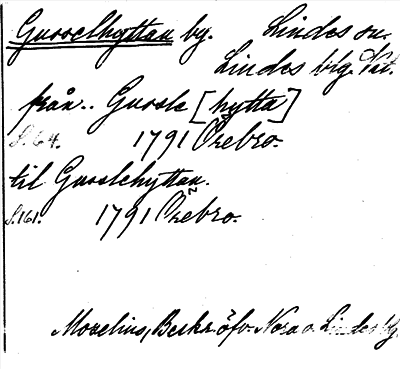 Gusselhyttan by. Lindes sn.
Lindes blg. Väst.
från.. Gussle [hytta]
S. 64. 1791 Örebro.
til Gusslehyttan.
S. 161. 1791 Örebro.
Moselius, Beskr. öfv. Nora o. Lindes blg.